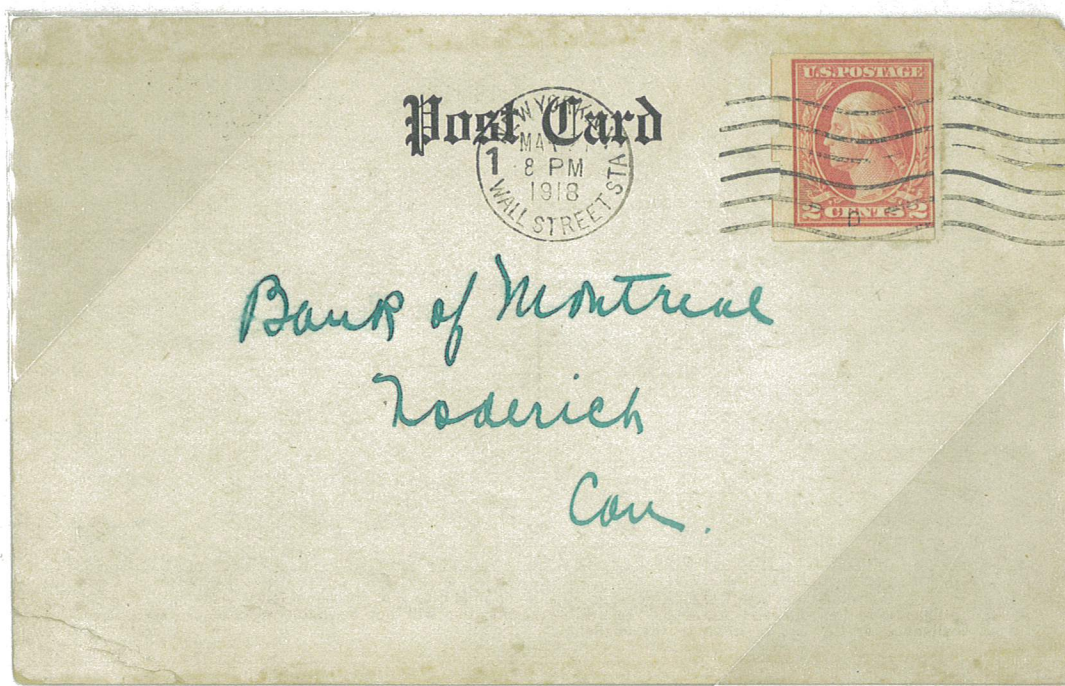 Post Card
NEW YORK
1
8 PM
1918
WALL STREET. STA
U.S.POSTAGE
2 CENTS 2
Bank of Montreal
Goderich
Can.